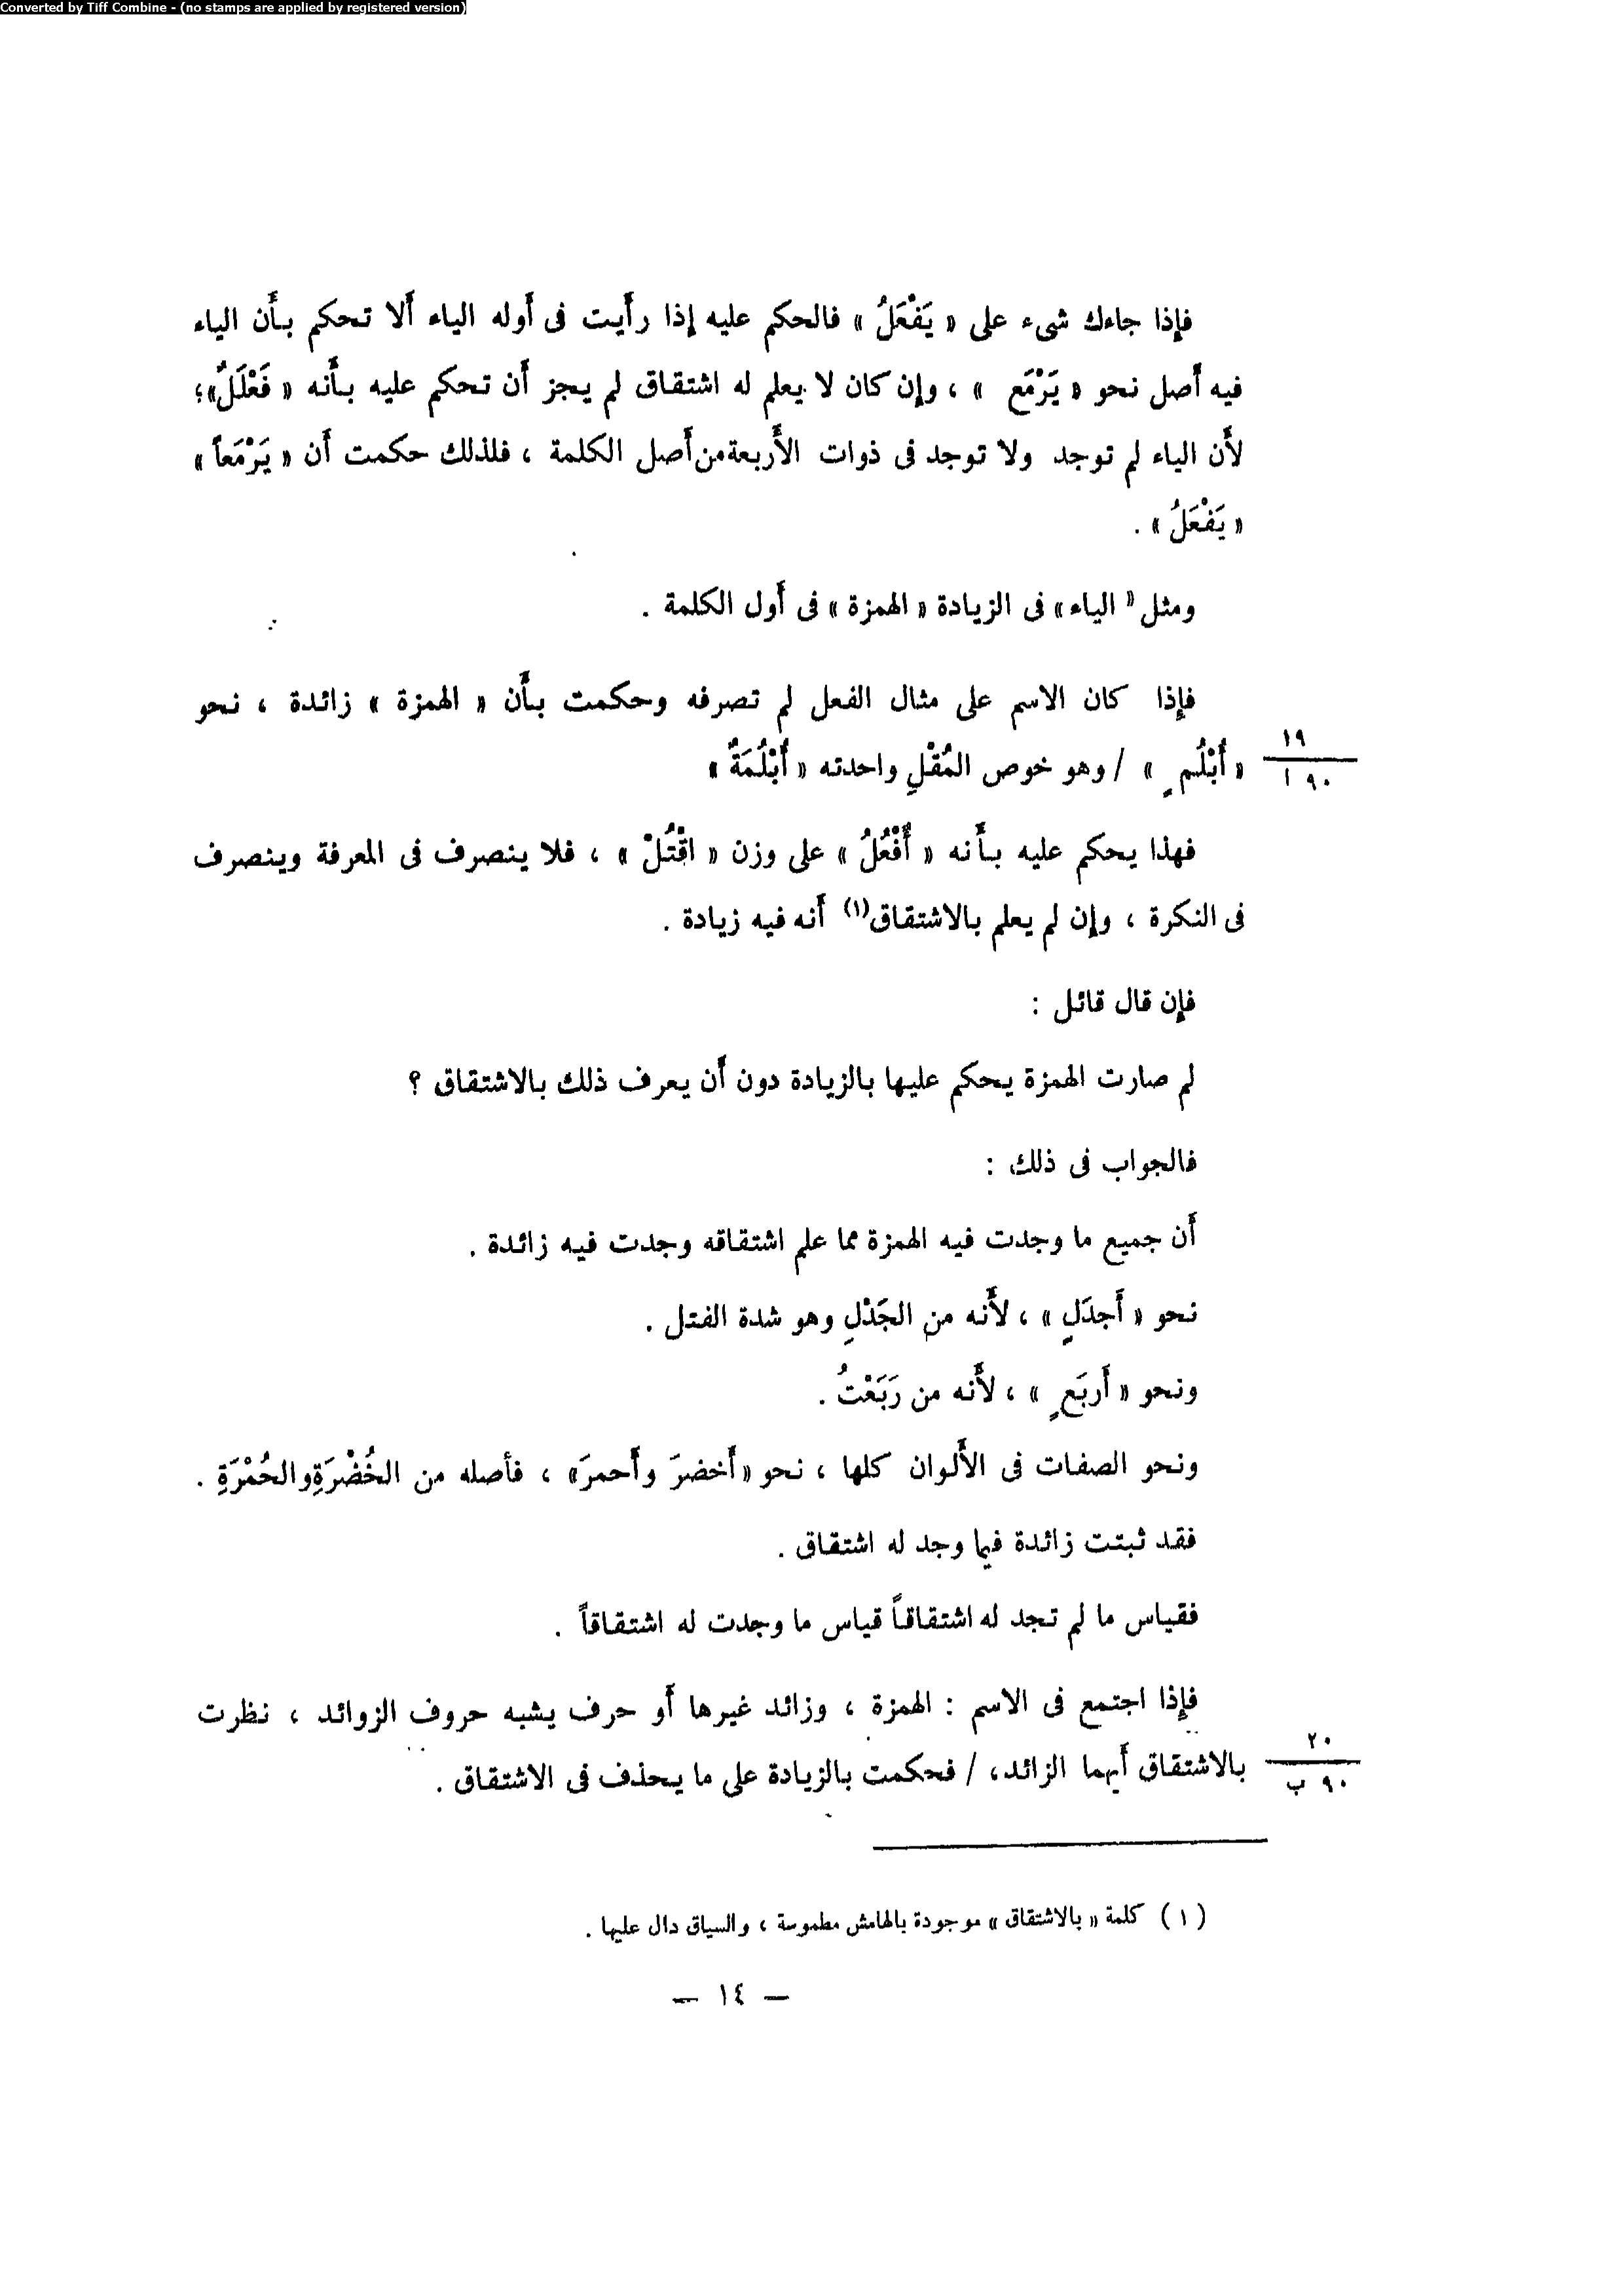 Converted by Tiff Combine - (no stamps are applied by registered version)
فإذا جاءك شىء على « يَفْعَلُ » فالحكم عليه إذا رأيت فى أوله الياء ألا تحكم بأن الياء
فيه أصل نحو « يَرْمَع » ، وإن كان لا يعلم له اشتقاق لم يجز أن تحكم عليه بأنه « فَعْلَلٌ» ؛
لأن الياء لم توجد ولا توجد فى ذوات الأربعة من أصل الكلمة ، فلذلك حكمت أن « يَرْمَعاً »
« يَفْعَلُ » .
ومثل « الياء» فى الزيادة « الهمزة » فى أول الكلمة .
فإذا كان الاسم على مثال الفعل لم تصرفه وحكمت بأن « الهمزة » زائدة ، نحو
« أُبْلُمٍ » / وهو خوص المُقْلِ واحدته « أُبْلُمَةٌ »
١٩
٩٠ ا
فهذا يحكم عليه بأنه « أُفْعُلُ » على وزن « اقْتُلْ » ، فلا ينصرف فى المعرفة وينصرف
فى النكرة ، وإن لم يعلم بالاشتقاق(١) أنه فيه زيادة .
فإن قال قائل :
لم صارت الهمزة يحكم عليها بالزيادة دون أن يعرف ذلك بالاشتقاق ؟
فالجواب فى ذلك :
أن جميع ما وجدت فيه الهمزة مما علم اشتقاقه وجدت فيه زائدة .
نحو « أَجدَلٍ » ، لأنه من الجَدْلِ وهو شدة الفتل .
ونحو « أَربَعٍ » ، لأنه من رَبَعْتُ .
ونحو الصفات فى الألوان كلها ، نحو « أخضرَ وأحمرَ» ، فأصله من الخُضْرَةِ والحُمْرَةِ .
فقد ثبتت زائدة فيما وجد له اشتقاق .
فقياس ما لم تجد له اشتقاقاً قياس ما وجدت له اشتقاقاً .
فإذا اجتمع فى الاسم : الهمزة ، وزائد غيرها أو حرف يشبه حروف الزوائد ، نظرت
بالاشتقاق أيهما الزائد، / فحكمت بالزيادة على ما يحذف فى الاشتقاق .
٢٠
٩٠ ب
( ١ ) كلمة « بالاشتقاق » موجودة بالهامش مطموسة ، والسياق دال عليها .
— ١٤ —